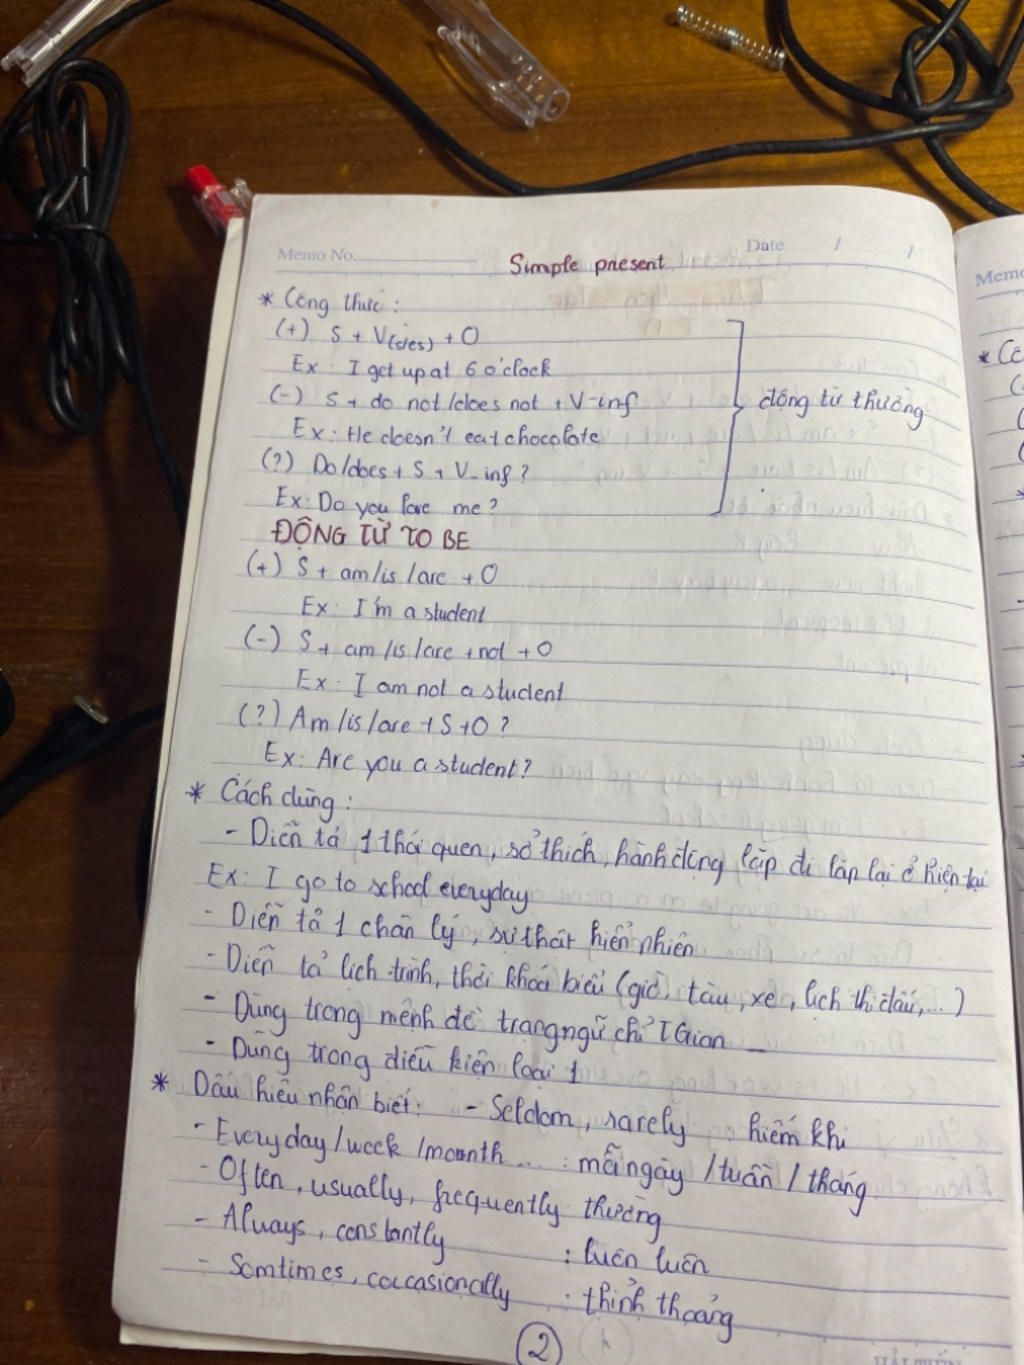 Memo No. Date / /
Simple present
* Công thức:
(+) S + V(s/es) + O
Ex: I get up at 6 o'clock
(-) S + do not/does not + V-inf
động từ thường
Ex: He doesn't eat chocolate
(?) Do/does + S + V-inf?
Ex: Do you love me?
ĐỘNG TỪ TO BE
(+) S + am/is/are + O
Ex: I'm a student
(-) S + am/is/are + not + O
Ex: I am not a student
(?) Am/is/are + S + O?
Ex: Are you a student?
* Cách dùng:
- Diễn tả 1 thói quen, sở thích, hành động lặp đi lặp lại ở hiện tại
Ex: I go to school everyday
- Diễn tả 1 chân lý, sự thật hiển nhiên
- Diễn tả lịch trình, thời khoá biểu (giờ, tàu, xe, lịch thi đấu,...)
- Dùng trong mệnh đề trạng ngữ chỉ TGian
- Dùng trong điều kiện loại 1
* Dấu hiệu nhận biết: - Seldom, rarely : hiếm khi
- Everyday/week/month ... : mỗi ngày / tuần / tháng
- Often, usually, frequently : thường
- Always, constantly : luôn luôn
- Somtimes, occasionally : thỉnh thoảng
2
Memo